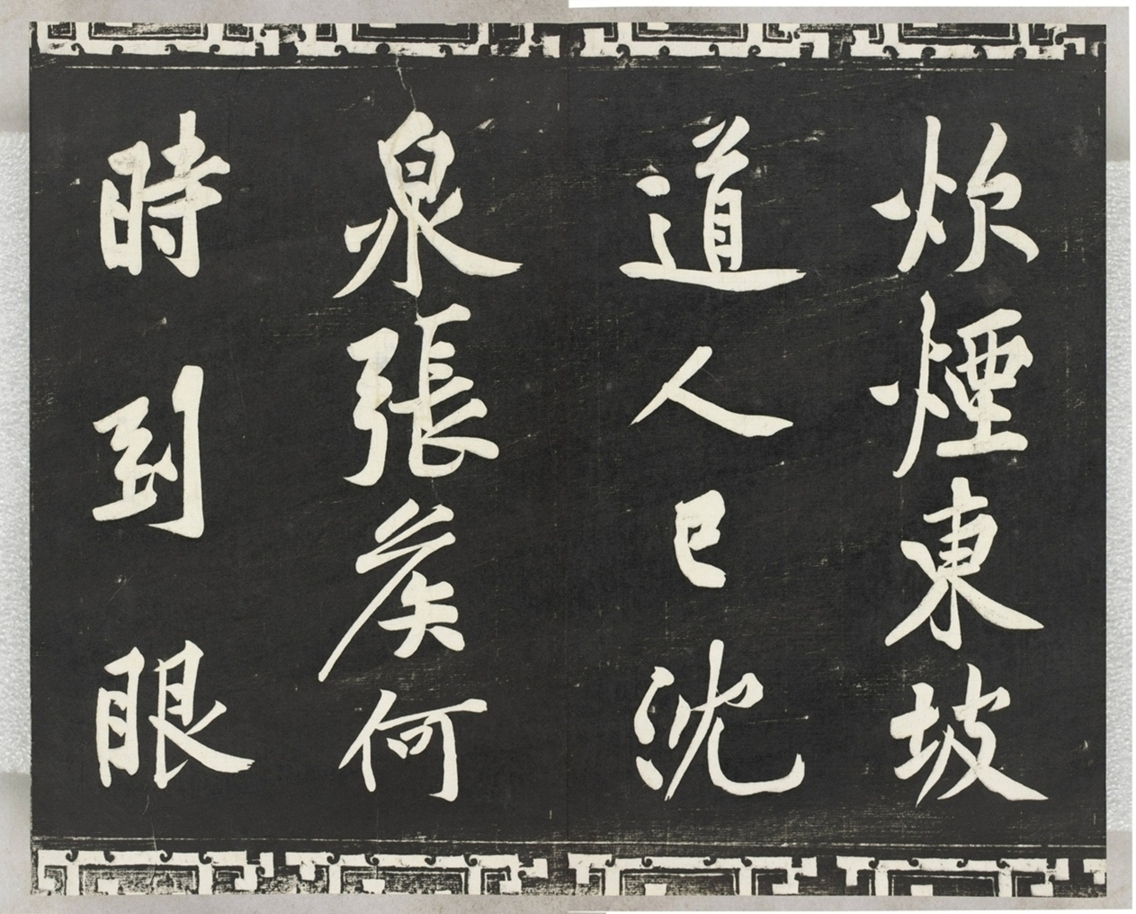 炊煙東坡
道人已沈
泉張矦何
時到眼